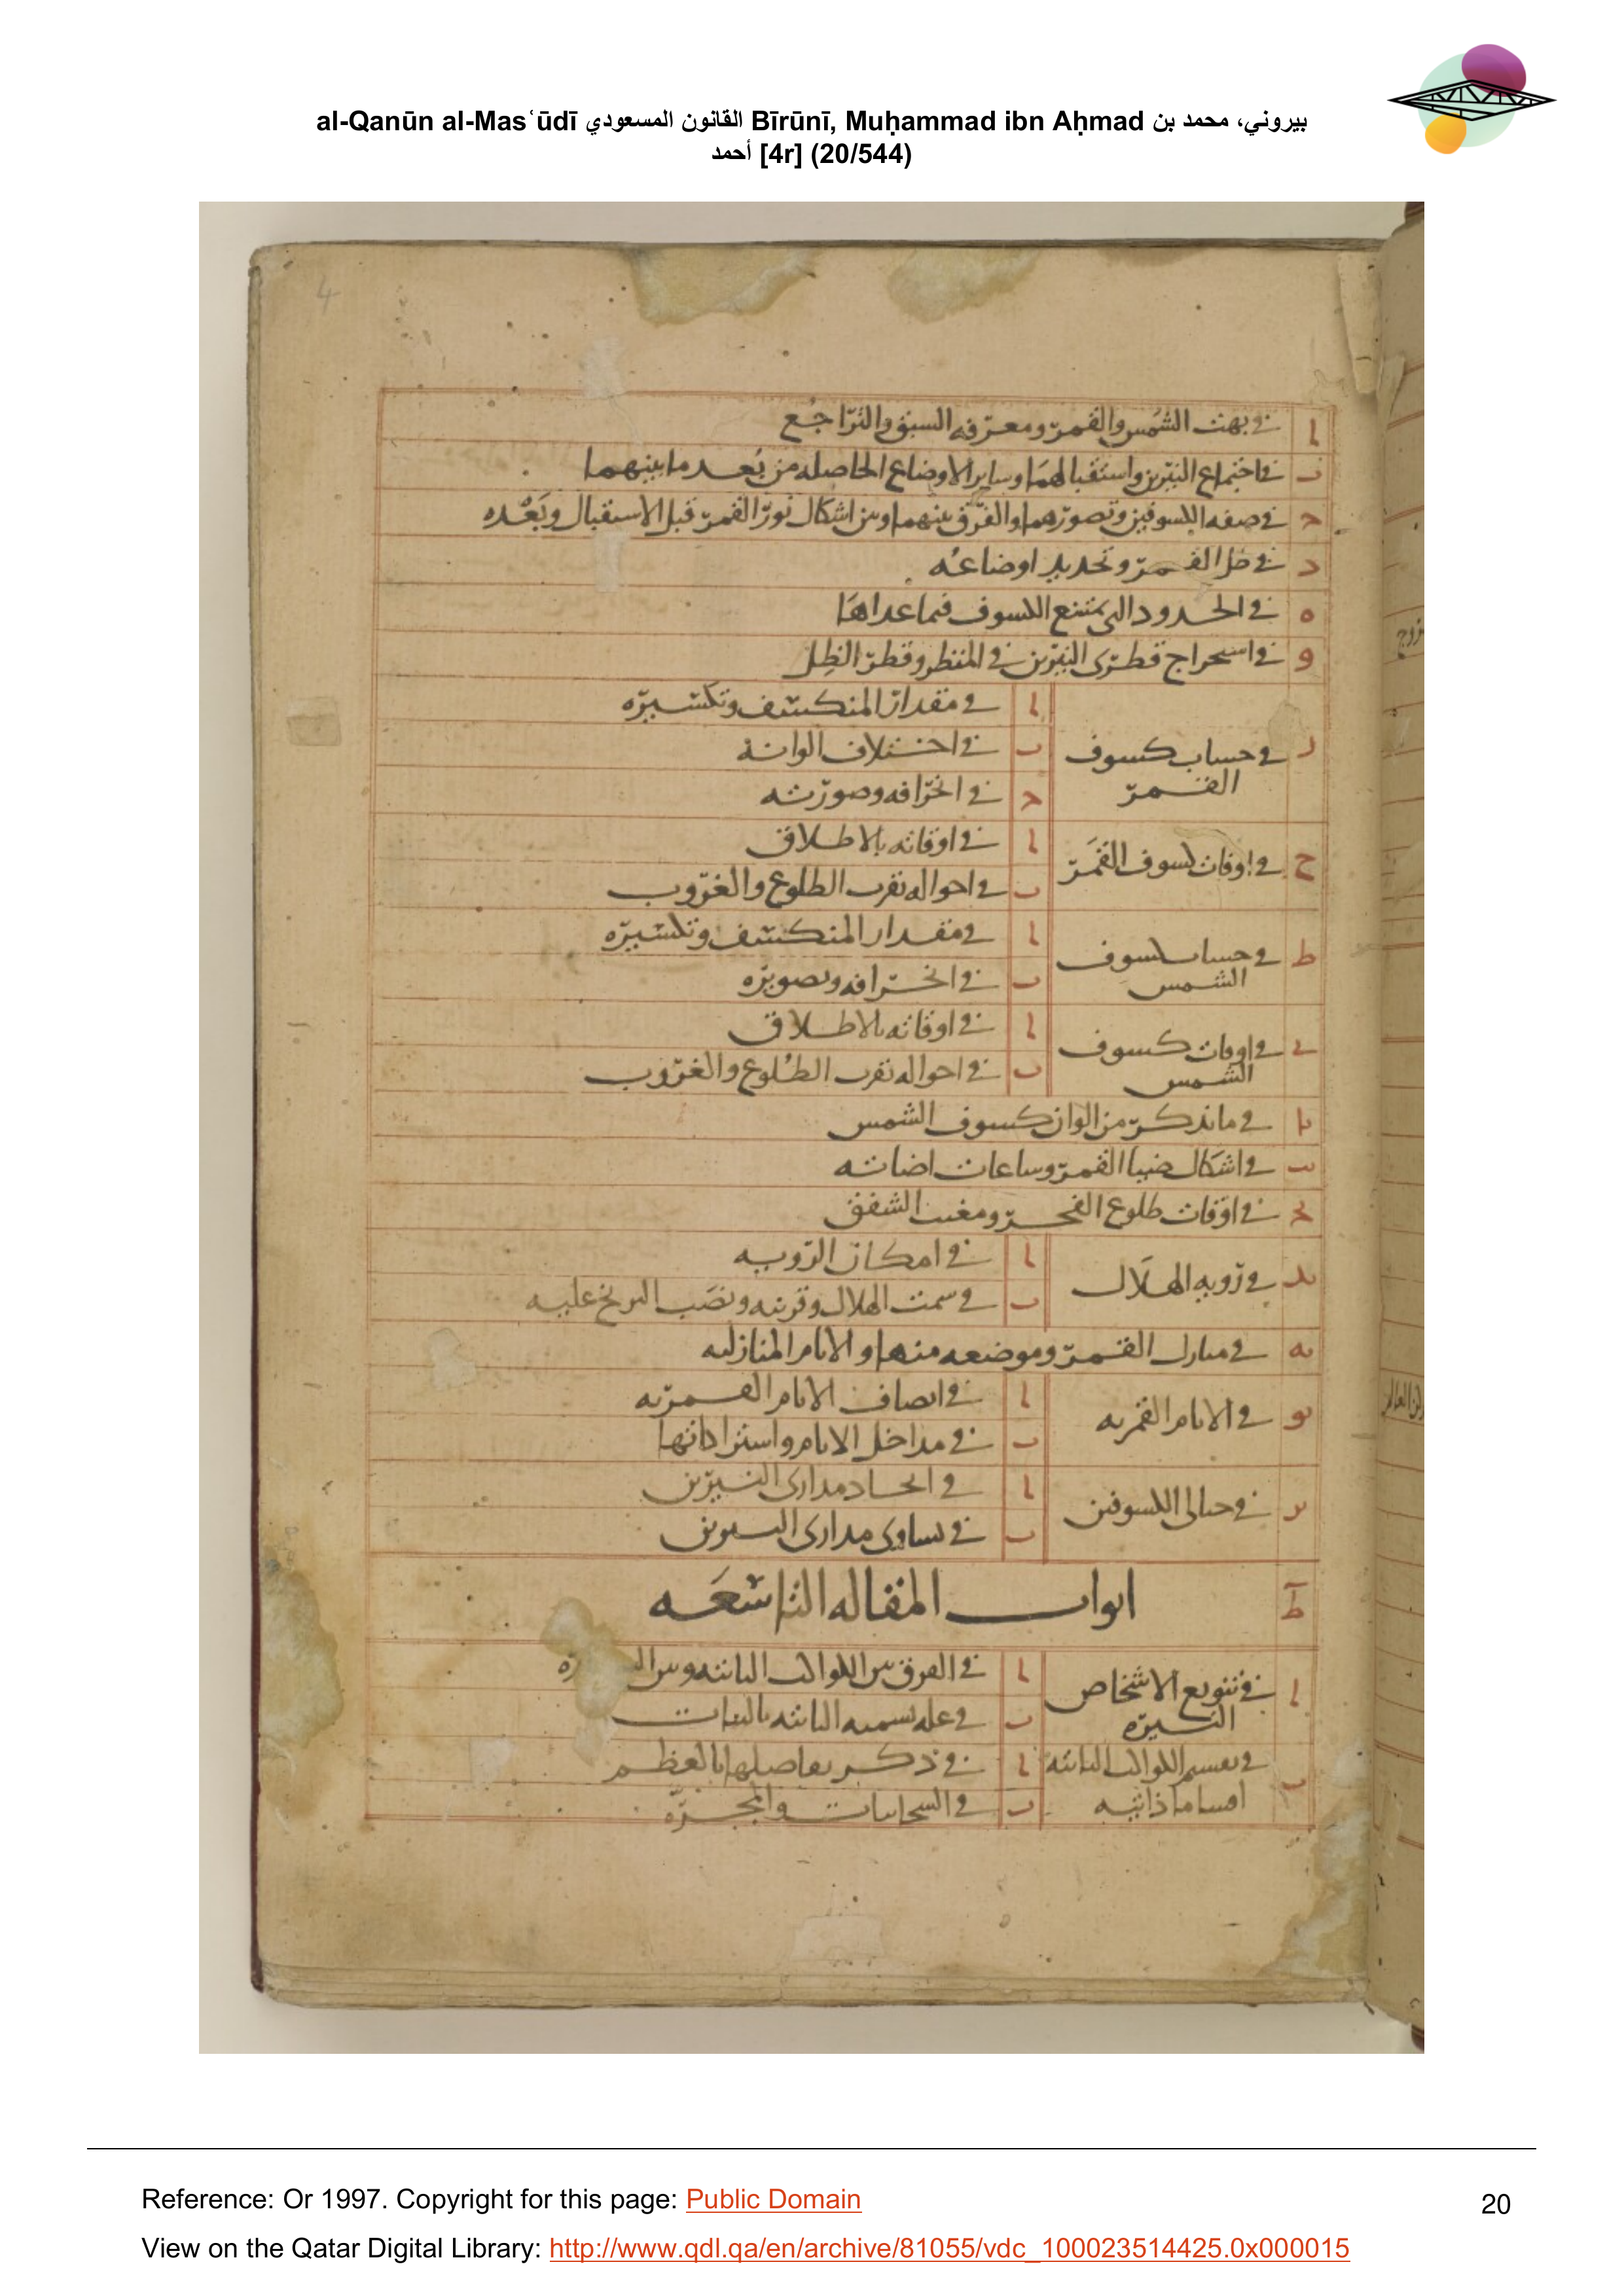 al-Qanūn al-Masʿūdī القانون المسعودي Bīrūnī, Muḥammad ibn Aḥmad بيروني، محمد بن
أحمد [4r] (20/544)
4
ا في بهت الشمس والقمر ومعرفه السبق والتراجع
ب في اجتماع النيرين واستقبالهما وساير الاوضاع الحاصله من بعد ما بينهما
ج في صفه الكسوفين وتصورهما والفرق بينهما وبين اشكال نور القمر قبل الاستقبال وبعده
د في ظل القمر وتحديد اوضاعه
ه في الحدود التي يمتنع الكسوف فيما عداها
و في استخراج قطرى النيرين في المنظر وقطر الظل
ز في حساب كسوف القمر
ا في مقدار المنكسف وتكسيره
ب في اختلاف الوانه
ج في انحرافه وصورته
ح في اوقات كسوف القمر
ا في اوقاته بالاطلاق
ب في احواله بقرب الطلوع والغروب
ط في حساب كسوف الشمس
ا في مقدار المنكسف وتكسيره
ب في انحرافه وتصويره
ى في اوقات كسوف الشمس
ا في اوقاته بالاطلاق
ب في احواله بقرب الطلوع والغروب
يا في ما يذكر من الوان كسوف الشمس
يب في اشكال ضيا القمر وساعات اضاته
يج في اوقات طلوع الفجر ومغيب الشفق
يد في رويه الهلال
ا في امكان الرويه
ب في سمت الهلال وقرنيه ونصب البربخ عليه
يه في منازل القمر وموضعه منها والايام المنازليه
يو في الايام القمريه
ا في انصاف الايام القمريه
ب في مداخل الايام واستراداتها
يز في حالى الكسوفين
ا في اتحاد مدارى النيرين
ب في تساوى مدارى النيرين
ط ابواب المقاله التاسعه
ا في تنويع الاشخاص النيره
ا في الفرق بين الكواكب الثابته وبين
ب في عله تسميه الثابته بالثبات
ب في تقسيم الكواكب الثابته اقساما ذاتيه
ا في ذكر تفاضلها بالعظم
ب في السحابيات والمجره
Reference: Or 1997. Copyright for this page: Public Domain
20
View on the Qatar Digital Library: http://www.qdl.qa/en/archive/81055/vdc_100023514425.0x000015